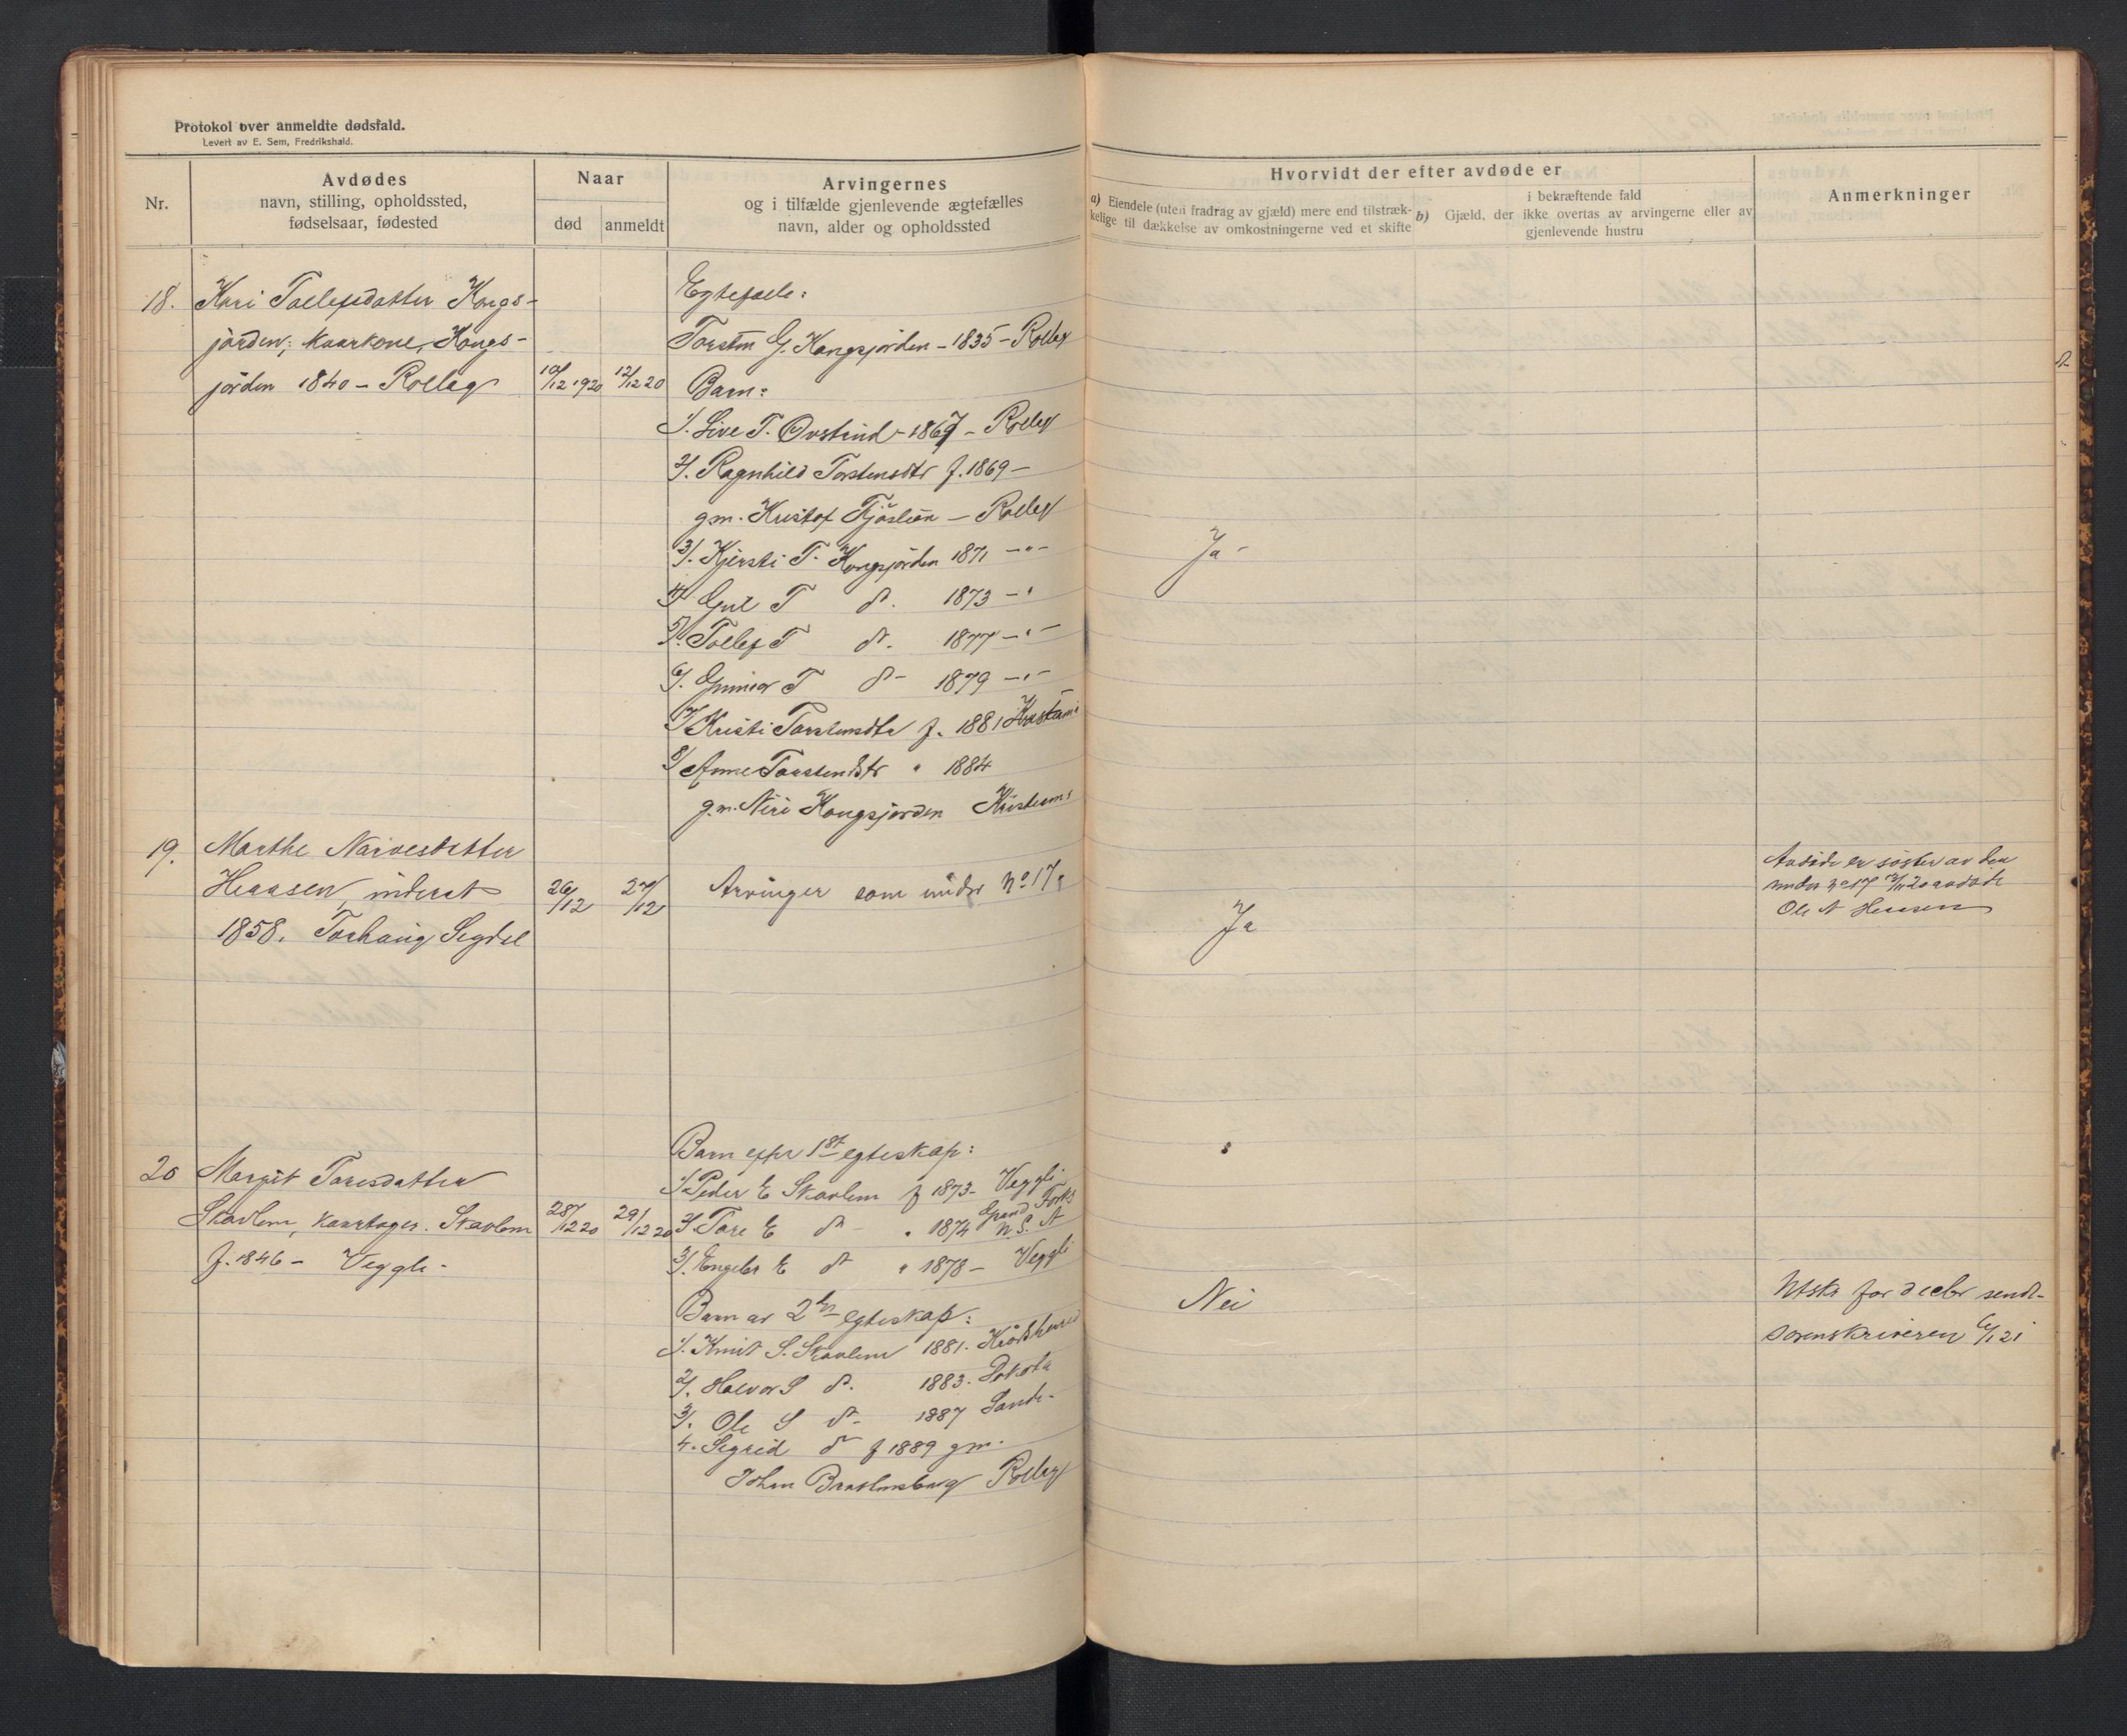 Protokol over anmeldte dødsfald.
Levert av E. Sem, Fredrikshald.
Nr.
Avdødes
navn, stilling, opholdssted,
fødselsaar, fødested
Naar
død
anmeldt
Arvingernes
og i tilfælde gjenlevende ægtefælles
navn, alder og opholdssted
Hvorvidt der efter avdøde er
a) Eiendele (uten fradrag av gjæld) mere end tilstræk-
kelige til dækkelse av omkostningerne ved et skifte
i bekræftende fald
b) Gjæld, der ikke overtas av arvingerne eller av
gjenlevende hustru
Anmerkninger
18. Kari Tollefsdatter Kongs-
jorden; kaarkone, Kongs-
jorden 1840 – Rollag
10/12 1920
12/12 20
Egtefæle:
Torsten G. Kongsjorden – 1835 – Rollag
Barn:
1/. Live T. Ovstrud – 1867 – Rollag
2/. Ragnhild Torstensdtr f. 1869 –
gm. Kristof Fjöslien – Rollag
3/. Kjersti T. Kongsjorden 1871 – " –
4/ Gul T do. 1873 – "
5/. Tollef T do. 1877 – " –
6/. Gunnar T do – 1879 – " –
7/ Kristi Torstensdtr f. 1881
8/ Anne Torstensdtr " 1884
g.m. Kongsjorden Kristiania
Ja –
19. Marthe Narvesdatter
Hensen, inderst
1858. Torhaug Sigdal
26/12
27/12
Arvinger som under No 17.
Ja
Avdøde er søster av den
under No 17 avdøde
Ole N Hensen
20 Margit Toresdatter
Skavlem, kaartager. Skavlem
f. 1846 – Veggli –
28/12 20
29/12 20
Barn efter 1ste egteskap:
1/ Peder E Skavlem f 1873 – Veggli
2/. Tore E do – " 1874 Grand Forks
N. S. A
3/. Engebr E do " 1878 – Veggli
Barn av 2det egteskap:
1/. Knut S. Skavlem 1881. Krødsherred
2/. Halvor S do. 1883. Dakota
3/. Ole S do – 1887 Sande –
4. Sigrid do f 1889 gm.
Johan Rollag
Nei
Utskr for sendt
sorenskriveren 6/1 21